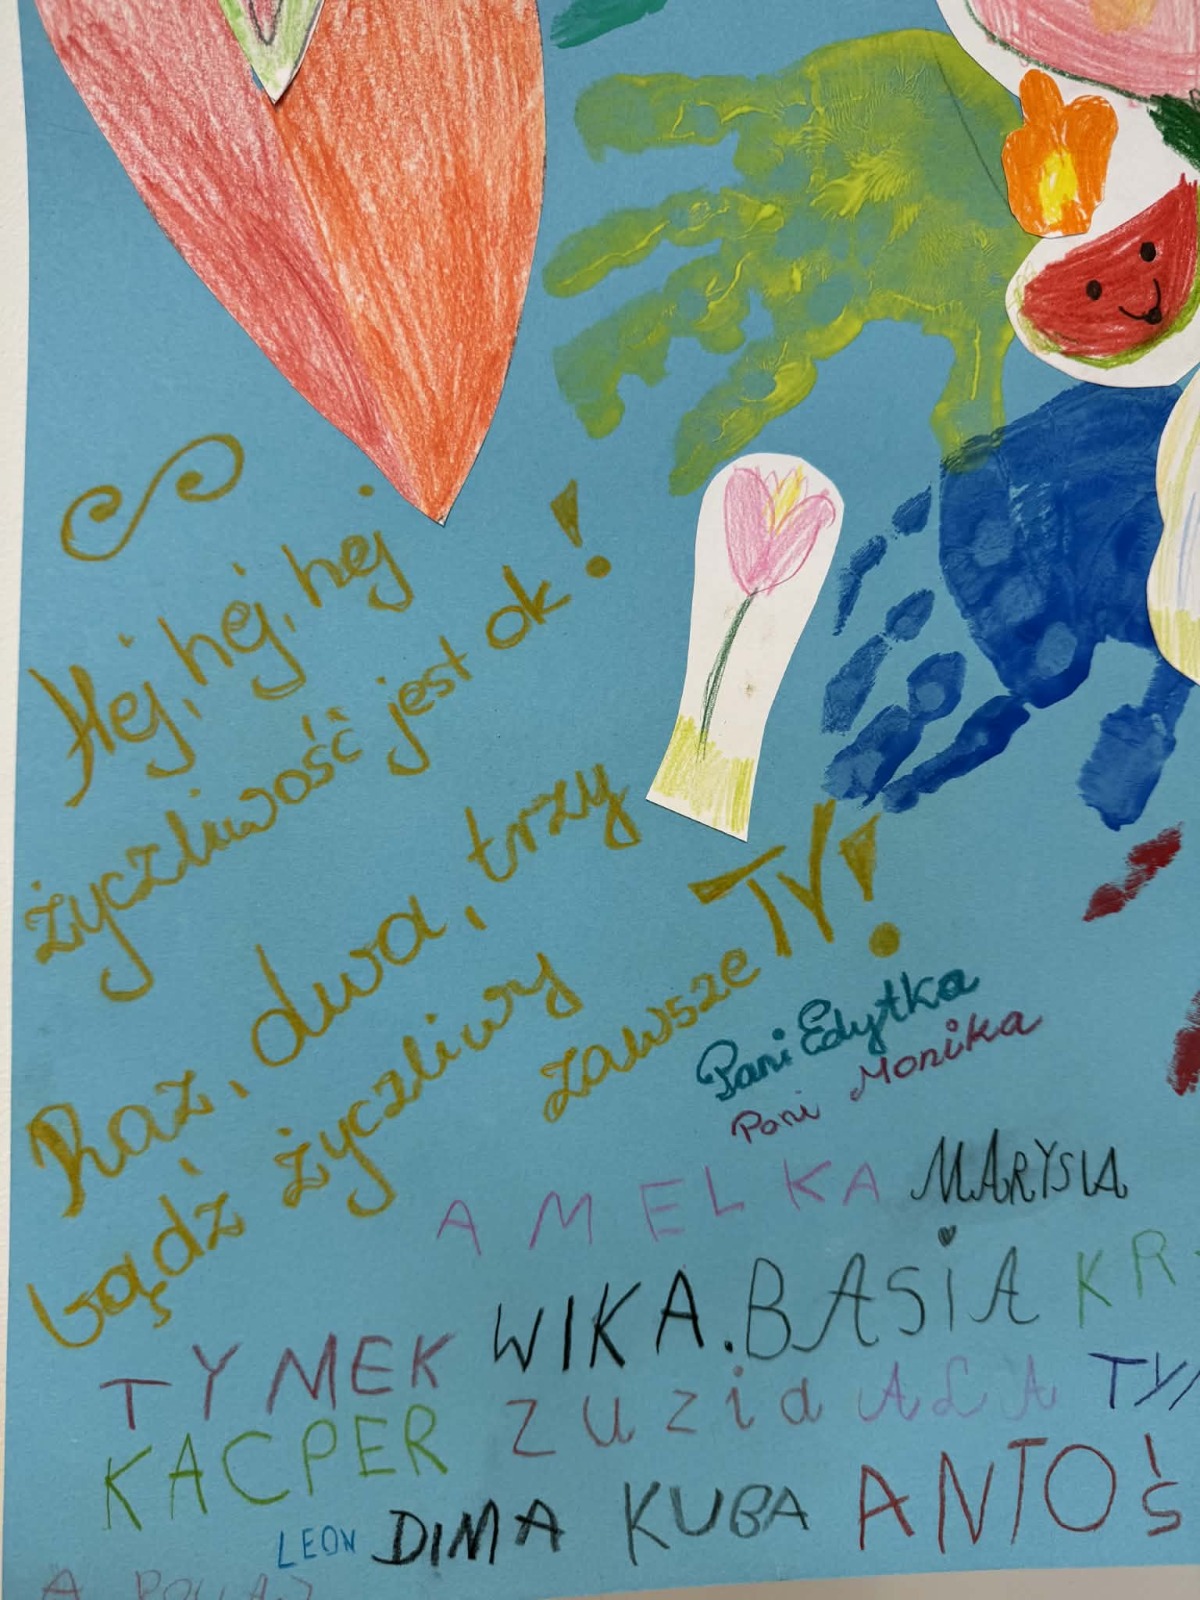 Hej, hej, hej
życzliwość jest ok!
Raz, dwa, trzy
bądź życzliwy
zawsze TY!
Pani Edytka
Pani Monika
AMELKA MARYSIA
TYMEK WIKA. BASIA KR
KACPER ZUZia ALA TY
LEON DIMA KUBA ANTOŚ